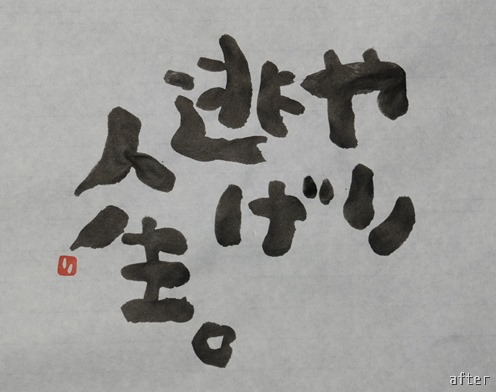 やり
逃げ
人生。
り
after